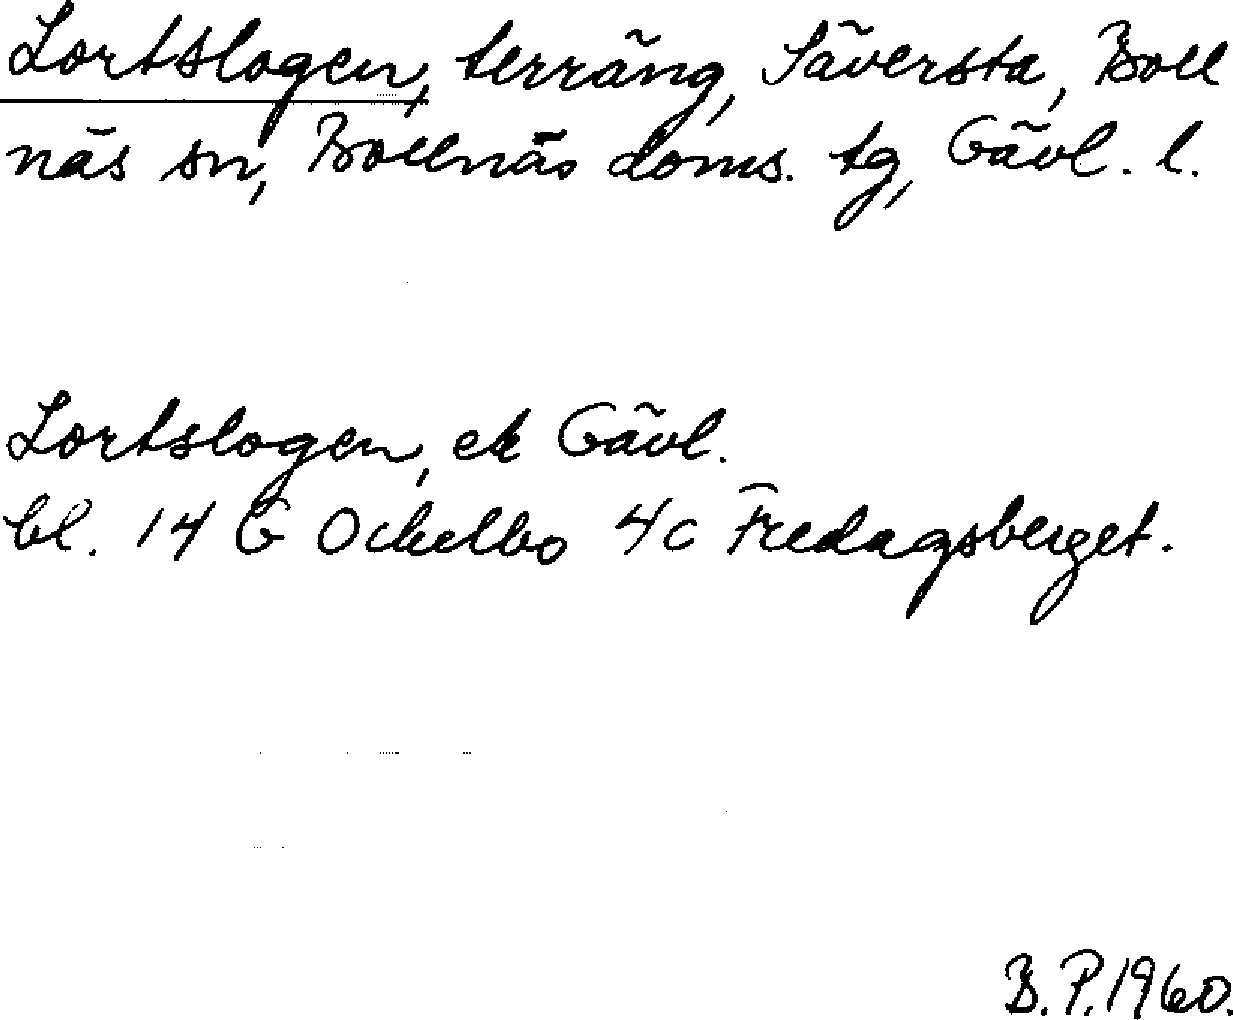 Lortslogen, terräng, Säversta, Boll
näs sn, Bollnäs doms. tg, Gävl. l.
Lortslogen, ek Gävl.
bl. 14 G Ockelbo 4c Fredagsberget.
B. P. 1960.